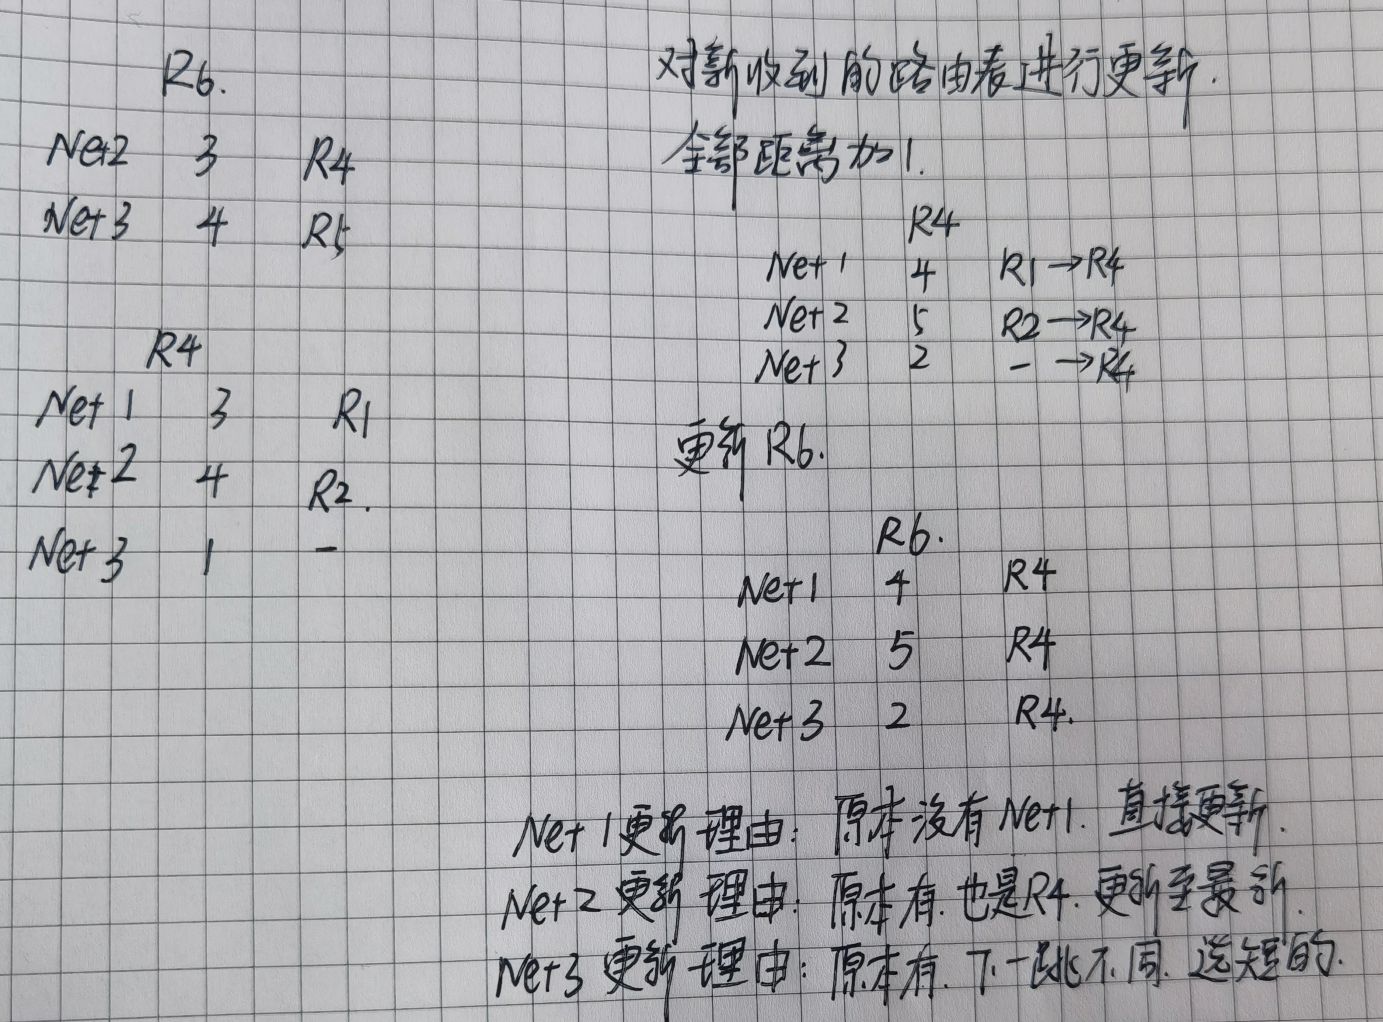 R6.
Net2 3 R4
Net3 4 R5
R4
Net1 3 R1
Net2 4 R2.
Net3 1 -
对新收到的路由表进行更新.
全部距离加1.
R4
Net1 4 R1→R4
Net2 5 R2→R4
Net3 2 - →R4
更新R6.
R6.
Net1 4 R4
Net2 5 R4
Net3 2 R4.
Net1更新理由: 原本没有Net1. 直接更新.
Net2更新理由: 原本有. 也是R4. 更新至最新.
Net3更新理由: 原本有. 下一跳不同. 选短的.